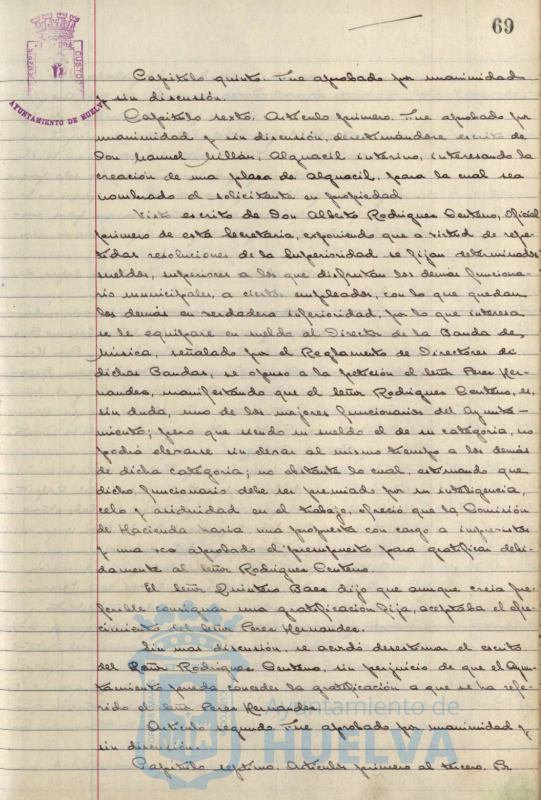 69
AYUNTAMIENTO DE HUELVA
Capítulo quinto. Fue aprobado por unanimidad
y sin discusión.
Capítulo sexto. Artículo primero. Fue aprobado por
unanimidad y sin discusión, desestimándose escrito de
Don Manuel Millán, Alguacil interino, interesando la
creación de una plaza de alguacil, para la cual sea
nombrado el solicitante en propiedad
Visto escrito de Don Alberto Rodríguez Centeno, Oficial
primero de esta Secretaría, exponiendo que a virtud de repe-
tidas resoluciones de la Superioridad se fijan determinados
sueldos, superiores a los que disfrutan los demás funciona-
rio municipales, a ciertos empleados, con lo que quedan
los demás en verdadera inferioridad, por lo que interesa
se le equipare en sueldo al Director de la Banda de
Música, señalado por el Reglamento de Directores de
dichas Bandas, se opuso a la petición el Señor Perez Her-
nandez, manifestando que el Señor Rodríguez Centeno, es,
sin duda, uno de los mejores funcionarios del Ayunta-
miento; pero que siendo su sueldo el de su categoría, no
podrá elevarse sin elevar al mismo tiempo a los demás
de dicha categoría; no obstante lo cual, estimando que
dicho funcionario debe ser premiado por su inteligencia,
celo y asiduidad en el trabajo, ofreció que la Comisión
de Hacienda haría una propuesta con cargo a imprevistos
y una vez aprobado el presupuesto para gratificar debi-
damente al Señor Rodríguez Centeno.
El Señor Quintero Baez dijo que aunque creía pre-
ferible consignar una gratificación fija, aceptaba el ofre-
cimiento del Señor Perez Hernandez.
Sin mas discusión, se acordó desestimar el escrito
del Señor Rodríguez Centeno, sin perjuicio de que el Ayun-
tamiento pueda conceder la gratificación a que se ha refe-
rido el Señor Perez Hernandez
Artículo segundo Fue aprobado por unanimidad y
sin discusión.
Capítulo septimo. Artículos primero al tercero.
Ayuntamiento de
HUELVA